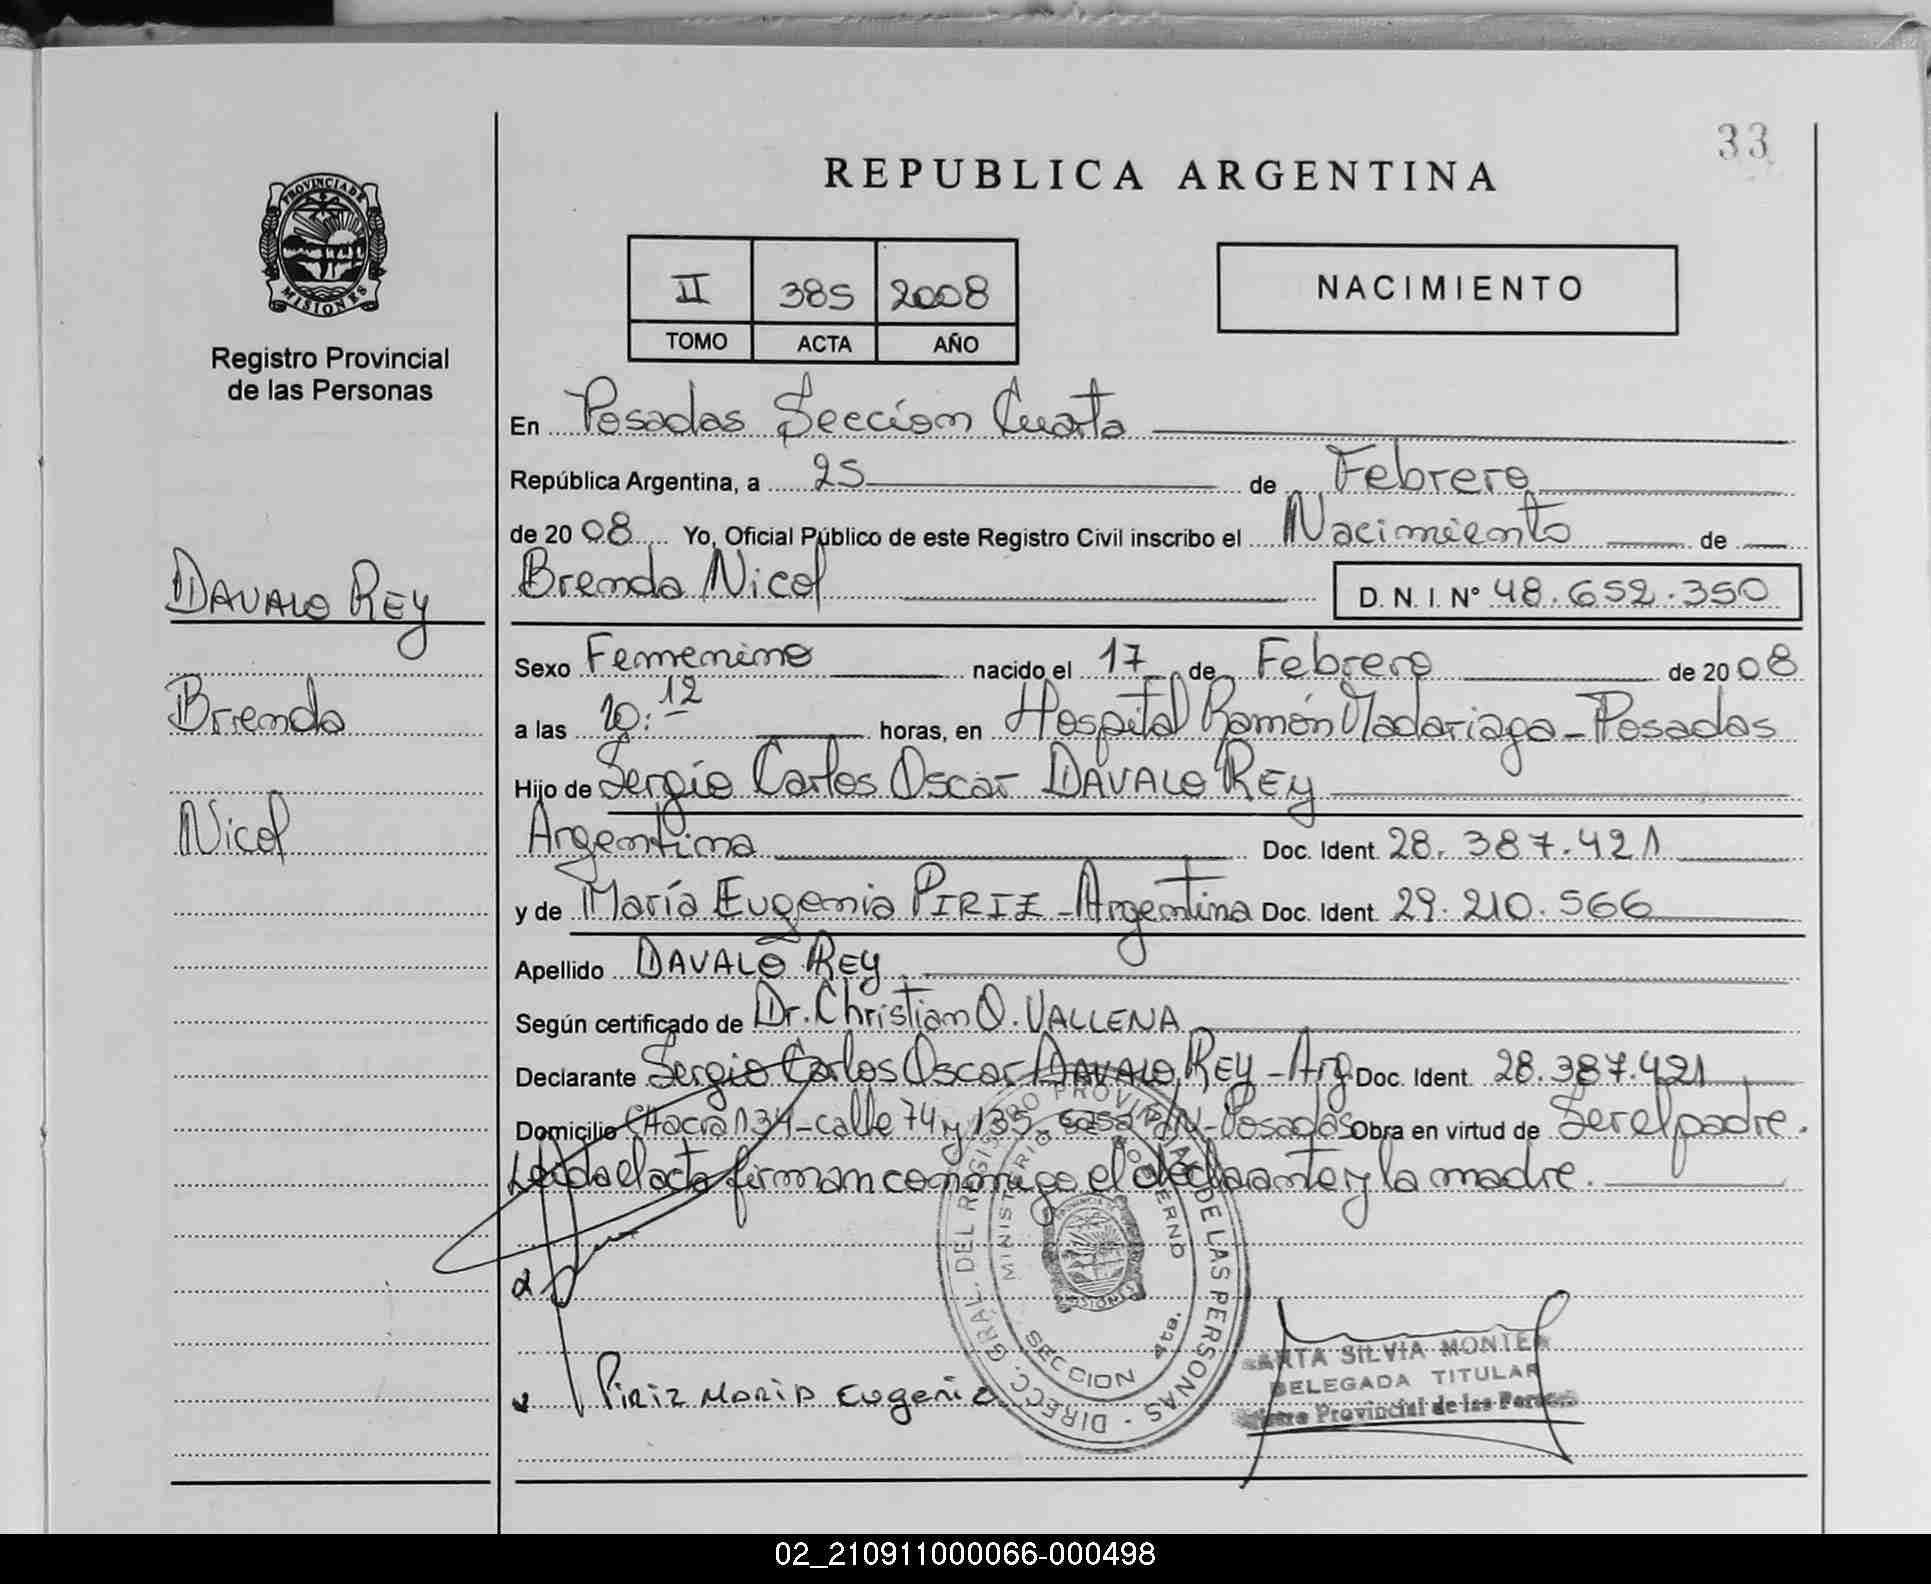 33
REPUBLICA ARGENTINA
PROVINCIA DE
MISIONES
Registro Provincial
de las Personas
II 385 2008
TOMO ACTA AÑO
NACIMIENTO
En Posadas Seccíon Cuarta
República Argentina, a 25 de Febrero
de 2008 Yo, Oficial Público de este Registro Civil inscribo el Nacimiento de
DAVALO REY
Brenda Nicol
D. N. I. N° 48.652.350
Sexo Femenino nacido el 17 de Febrero de 2008
Brenda
a las 10:12 horas, en Hospital Ramón Madariaga - Posadas
Hijo de Sergio Carlos Oscar DAVALO REY
Nicol
Argentina Doc. Ident. 28.387.421
y de María Eugenia PIRIZ - Argentina Doc. Ident. 29.210.566
Apellido DAVALO REY
Según certificado de Dr. Christian O. VALLENA
Declarante Sergio Carlos Oscar DAVALO REY - Arg Doc. Ident. 28.387.421
Domicilio CHacra 134 - calle 74 y 135 casa S/N - Posadas Obra en virtud de Ser el padre.
Leída el acta firman conmigo el declarante y la madre.
DIRECC. GRAL. DEL REGISTRO PROVINCIAL DE LAS PERSONAS
MINISTERIO GOBIERNO
MISIONES
SECCION 4ta.
PIRIZ MARIA EugeNia
SILVIA MONTE
DELEGADA TITULAR
Provincial de las Personas
02_210911000066-000498